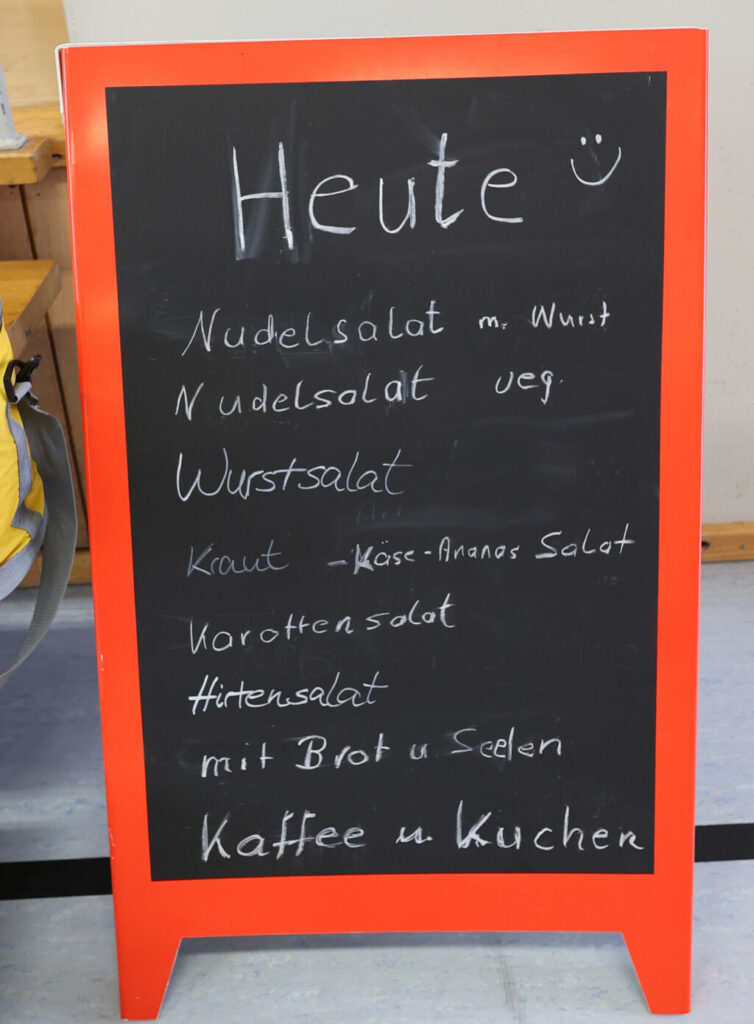 Heute
Nudelsalat m. Wurst
Nudelsalat veg.
Wurstsalat
Kraut - Käse-Ananas Salat
Karottensalat
Hirtensalat
mit Brot u Seelen
Kaffee u. Kuchen